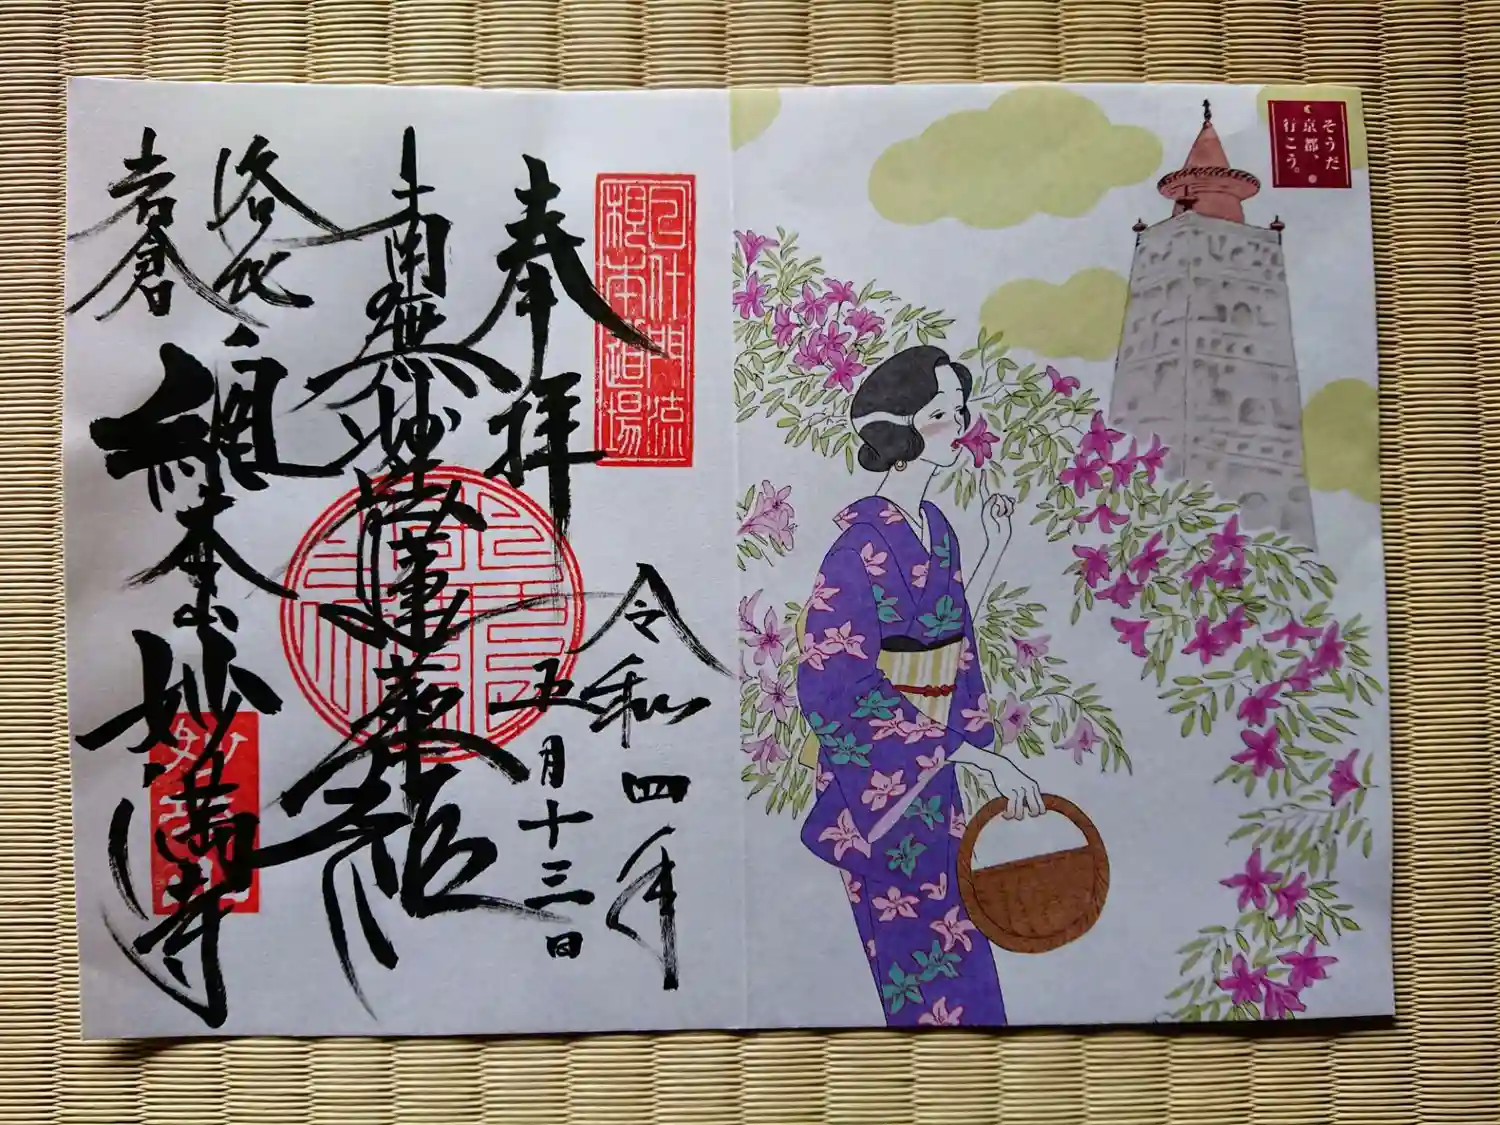 そうだ
京都、
行こう。
奉拝
令和四年
五月十三日
南無妙法蓮華経
洛北
岩倉
総本山妙満寺